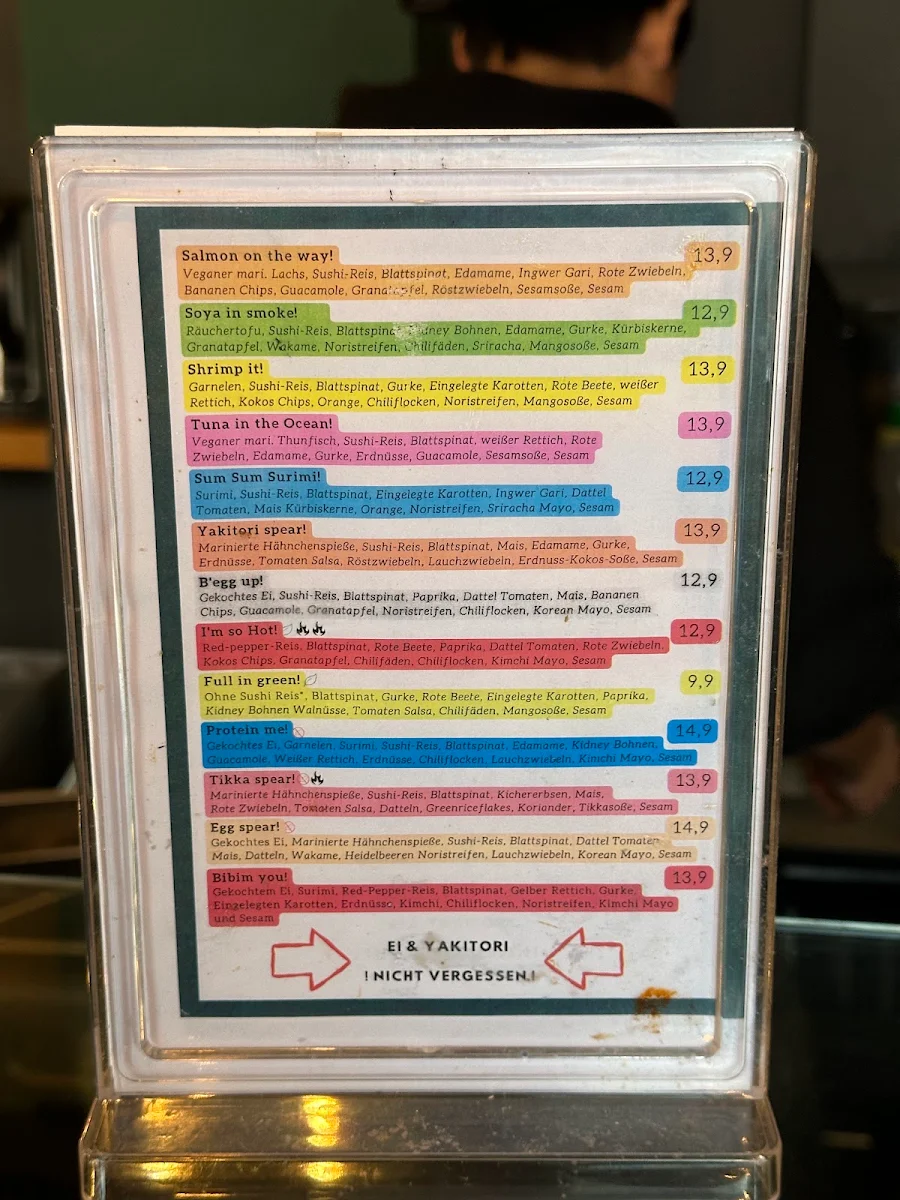 Salmon on the way! 13,9
Veganer mari. Lachs, Sushi-Reis, Blattspinat, Edamame, Ingwer Gari, Rote Zwiebeln,
Bananen Chips, Guacamole, Granatapfel, Röstzwiebeln, Sesamsoße, Sesam
Soya in smoke! 12,9
Räuchertofu, Sushi-Reis, Blattspinat, Kidney Bohnen, Edamame, Gurke, Kürbiskerne,
Granatapfel, Wakame, Noristreifen, Chilifäden, Sriracha, Mangosoße, Sesam
Shrimp it! 13,9
Garnelen, Sushi-Reis, Blattspinat, Gurke, Eingelegte Karotten, Rote Beete, weißer
Rettich, Kokos Chips, Orange, Chiliflocken, Noristreifen, Mangosoße, Sesam
Tuna in the Ocean! 13,9
Veganer mari. Thunfisch, Sushi-Reis, Blattspinat, weißer Rettich, Rote
Zwiebeln, Edamame, Gurke, Erdnüsse, Guacamole, Sesamsoße, Sesam
Sum Sum Surimi! 12,9
Surimi, Sushi-Reis, Blattspinat, Eingelegte Karotten, Ingwer Gari, Dattel
Tomaten, Mais Kürbiskerne, Orange, Noristreifen, Sriracha Mayo, Sesam
Yakitori spear! 13,9
Marinierte Hähnchenspieße, Sushi-Reis, Blattspinat, Mais, Edamame, Gurke,
Erdnüsse, Tomaten Salsa, Röstzwiebeln, Lauchzwiebeln, Erdnuss-Kokos-Soße, Sesam
B'egg up! 12,9
Gekochtes Ei, Sushi-Reis, Blattspinat, Paprika, Dattel Tomaten, Mais, Bananen
Chips, Guacamole, Granatapfel, Noristreifen, Chiliflocken, Korean Mayo, Sesam
I'm so Hot! 12,9
Red-pepper-Reis, Blattspinat, Rote Beete, Paprika, Dattel Tomaten, Rote Zwiebeln,
Kokos Chips, Granatapfel, Chilifäden, Chiliflocken, Kimchi Mayo, Sesam
Full in green! 9,9
Ohne Sushi Reis*, Blattspinat, Gurke, Rote Beete, Eingelegte Karotten, Paprika,
Kidney Bohnen Walnüsse, Tomaten Salsa, Chilifäden, Mangosoße, Sesam
Protein me! 14,9
Gekochtes Ei, Garnelen, Surimi, Sushi-Reis, Blattspinat, Edamame, Kidney Bohnen,
Guacamole, Weißer Rettich, Erdnüsse, Chiliflocken, Lauchzwiebeln, Kimchi Mayo, Sesam
Tikka spear! 13,9
Marinierte Hähnchenspieße, Sushi-Reis, Blattspinat, Kichererbsen, Mais,
Rote Zwiebeln, Tomaten Salsa, Datteln, Greenriceflakes, Koriander, Tikkasoße, Sesam
Egg spear! 14,9
Gekochtes Ei, Marinierte Hähnchenspieße, Sushi-Reis, Blattspinat, Dattel Tomaten
Mais, Datteln, Wakame, Heidelbeeren Noristreifen, Lauchzwiebeln, Korean Mayo, Sesam
Bibim you! 13,9
Gekochtem Ei, Surimi, Red-Pepper-Reis, Blattspinat, Gelber Rettich, Gurke,
Eingelegten Karotten, Erdnüsse, Kimchi, Chiliflocken, Noristreifen, Kimchi Mayo
und Sesam
EI & YAKITORI
! NICHT VERGESSEN!